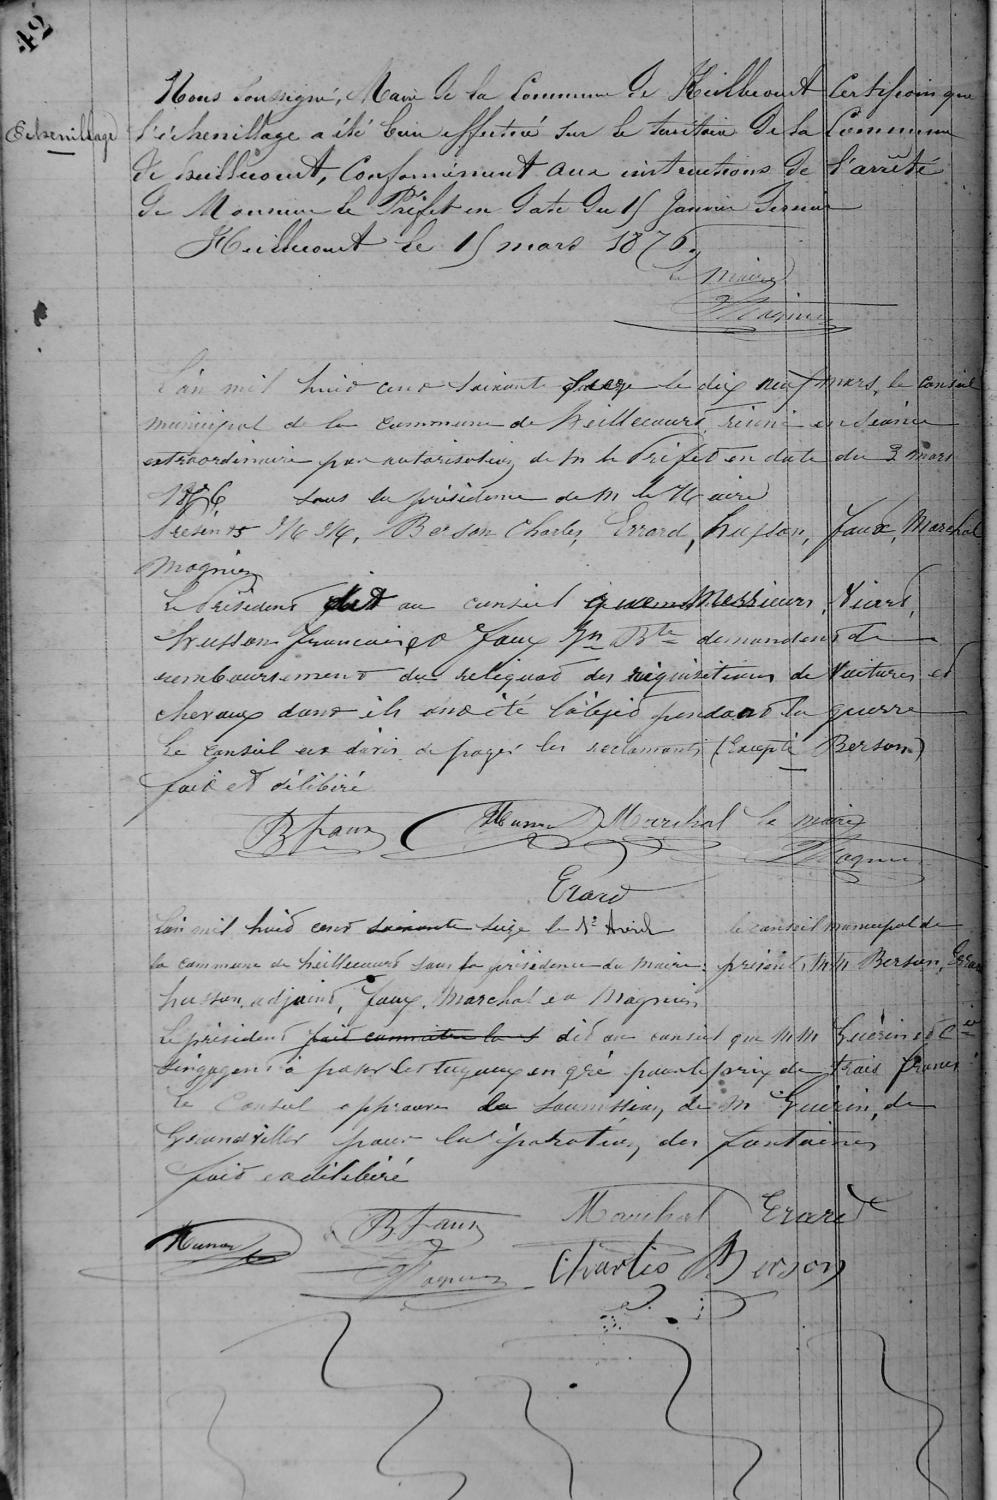 42
Echenillage
Nous soussigné, Maire de la Commune de Heillecourt Certifions que
l'échenillage a été bien effectué sur le territoire de la Commune
de heillecourt, Conformément aux instructions de l'arrêté
de Monsieur le Préfet en date du 15 Janvier dernier
Heillecourt le 15 mars 1876.
Le Maire
Magnien
L'an mil huit cent soixante seize le dix neuf mars, le conseil
municipal de la commune de heillecourt, réuni en séance
extraordinaire par autorisation de M le Préfet en date du 3 mars
1876 sous la présidence de M le Maire
Présents MM, Berson Charles, Errard, husson, faux, Marchal
Magnien
Le Président dit au conseil que Messieurs,
husson françois et faux Jn Bte demandent de
remboursement du reliquat des réquisitions de Voitures et
chevaux dont ils ont été l'objet pendant la guerre
Le conseil est d'avis de payer les réclamants (Excepté Berson)
fait et délibéré
B faux Husson Marchal le maire
Magnien
Erard
L'an mil huit cent soixante seize le 1er Avril le conseil municipal de
la commune de heillecourt sous la présidence du maire: présents MM Berson, Errard
husson adjoint, faux, Marchal et Magnien
Le président fait connaître la s dit au conseil que MM Guérin et Cie
s'engagent à poser les tuyaux en gré pour le prix de trois francs
Le Conseil approuve la soumission de M Guérin, de
Grandviller pour la réparation des fontaines
fait et délibéré
Husson B faux Marchal Erard
Magnien Charles Berson